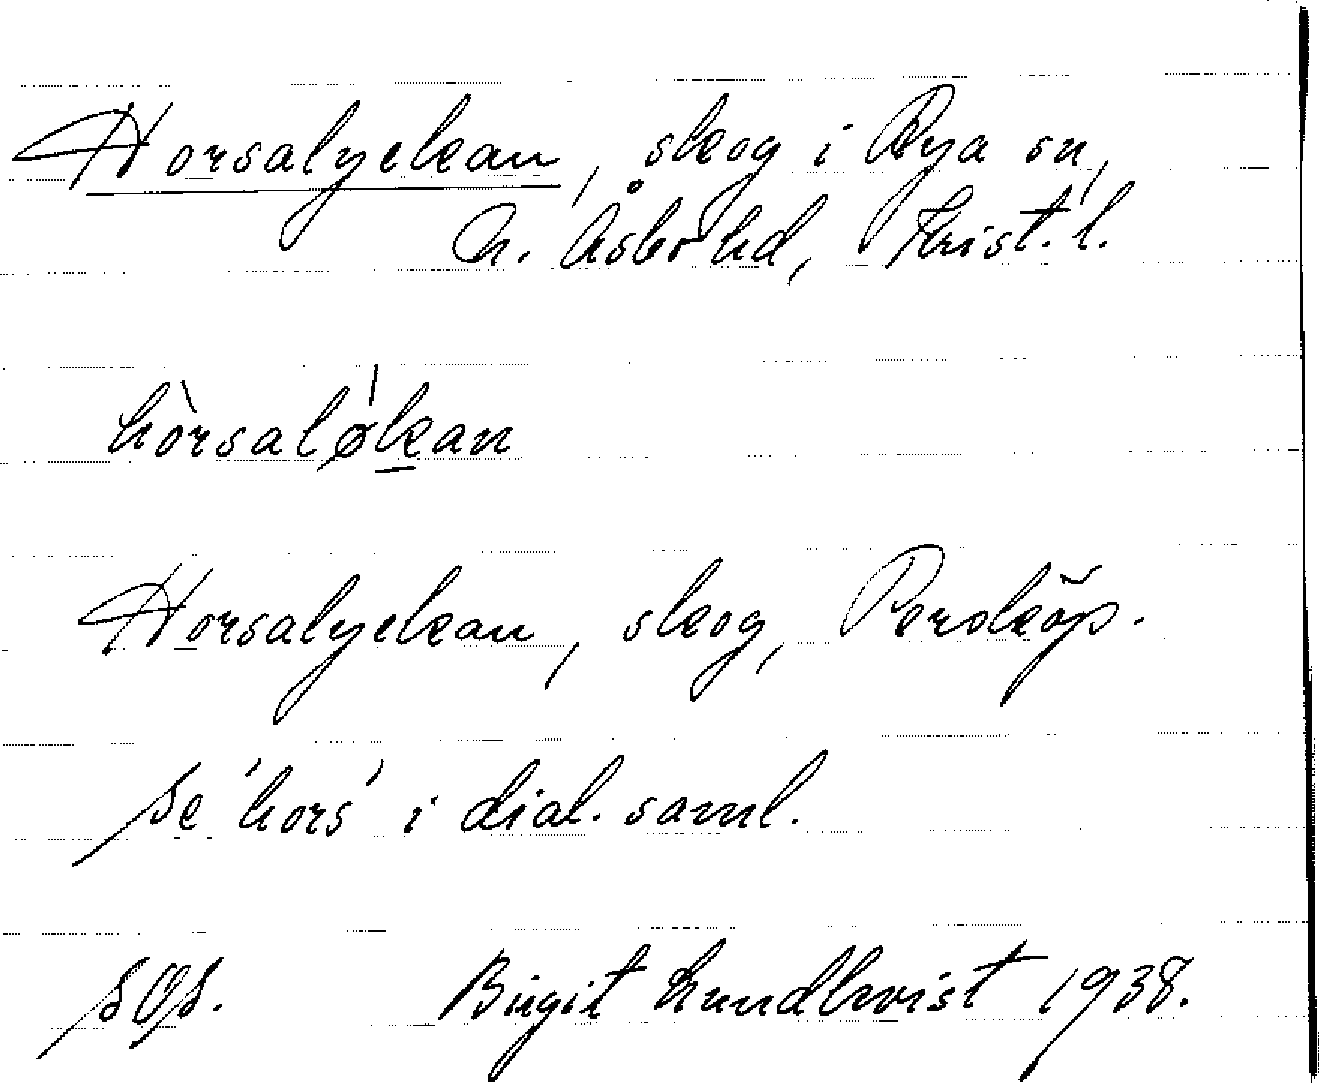 Horsalyckan, skog i Rya sn,
N. Åsbo hd, Krist. l.
hòrsaløkan
Horsalyckan, skog, Perdköp.
Se 'hors' i dial. saml.
Birgit Lundkvist 1938.